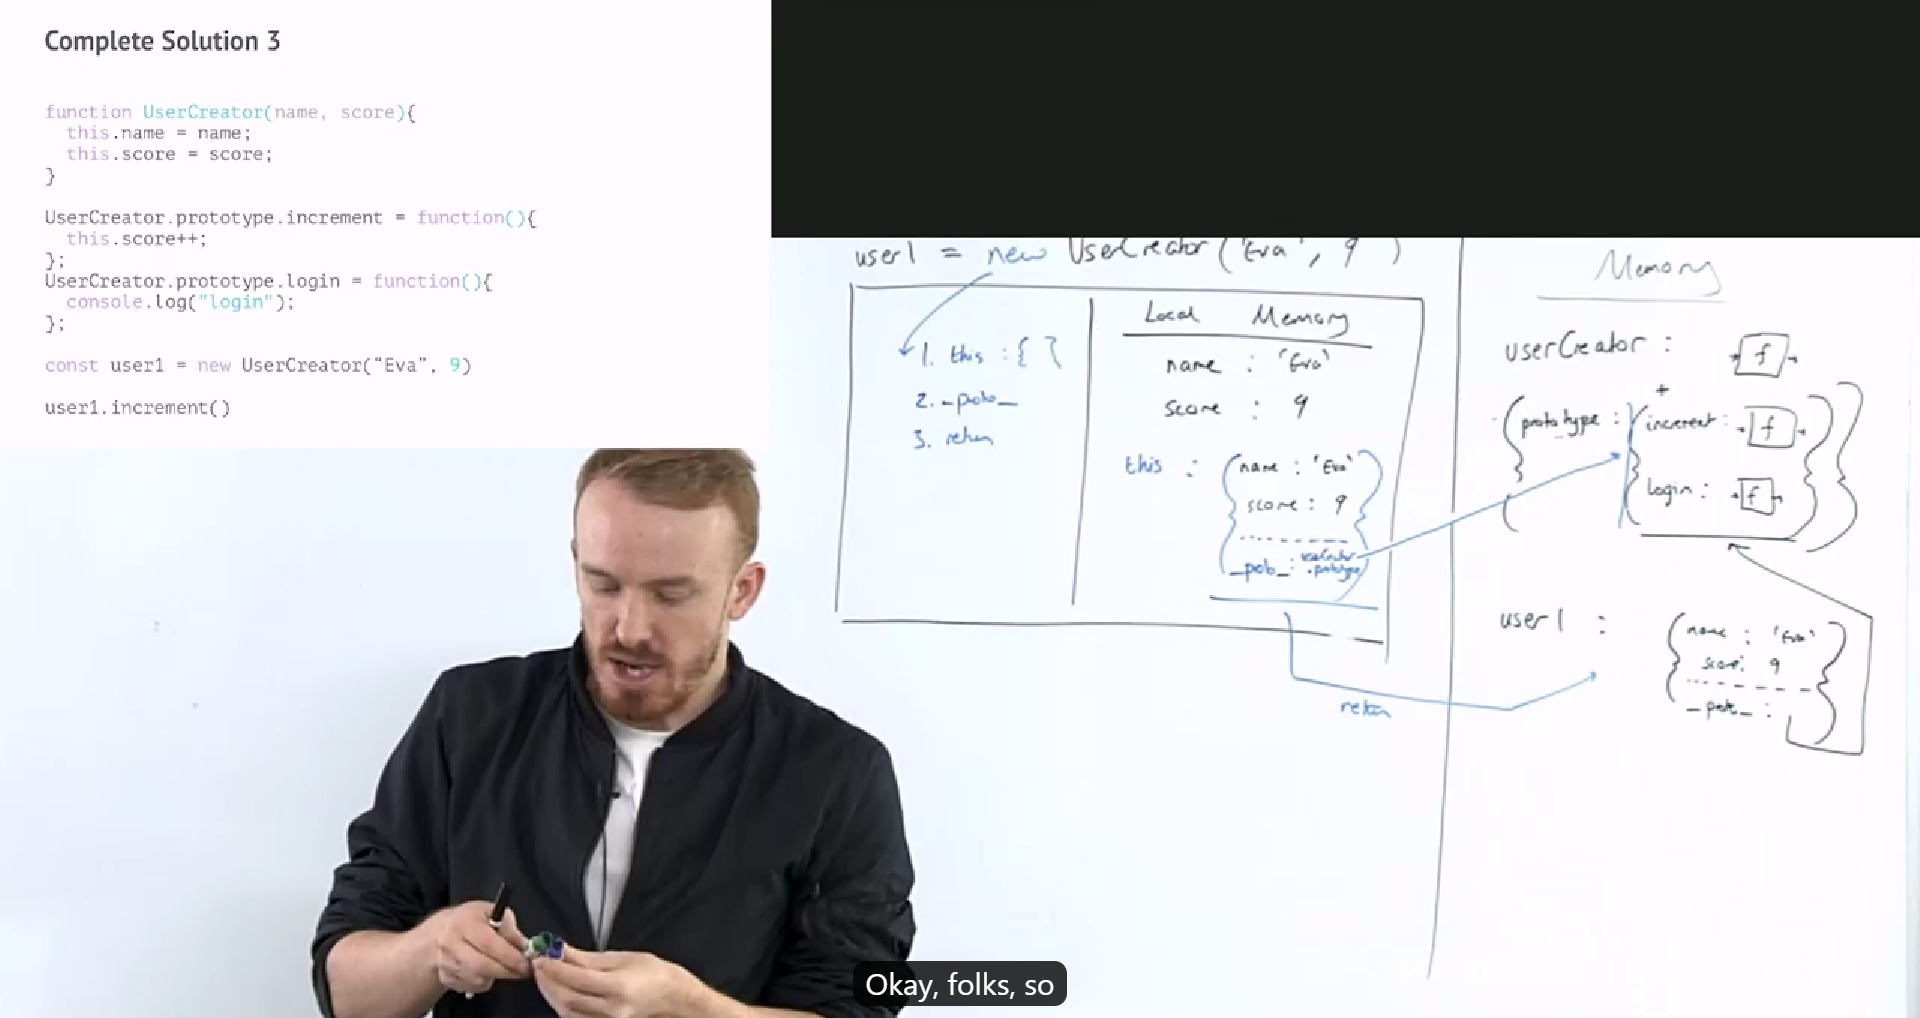 Complete Solution 3
function UserCreator(name, score){
this.name = name;
this.score = score;
}
UserCreator.prototype.increment = function(){
this.score++;
};
UserCreator.prototype.login = function(){
console.log("login");
};
const user1 = new UserCreator(“Eva”, 9)
user1.increment()
user1 = new UserCreator('Eva', 9)
1. this : { }
2. _proto_
3. return
Local Memory
name : 'Eva'
score : 9
this : { name : 'Eva'
score : 9
_proto_ : userCreator
.prototype }
return
Memory
userCreator : f
+
{ prototype : { increment : f
login : f } }
user1 : { name : 'Eva'
score: 9
_proto_ : }
Okay, folks, so